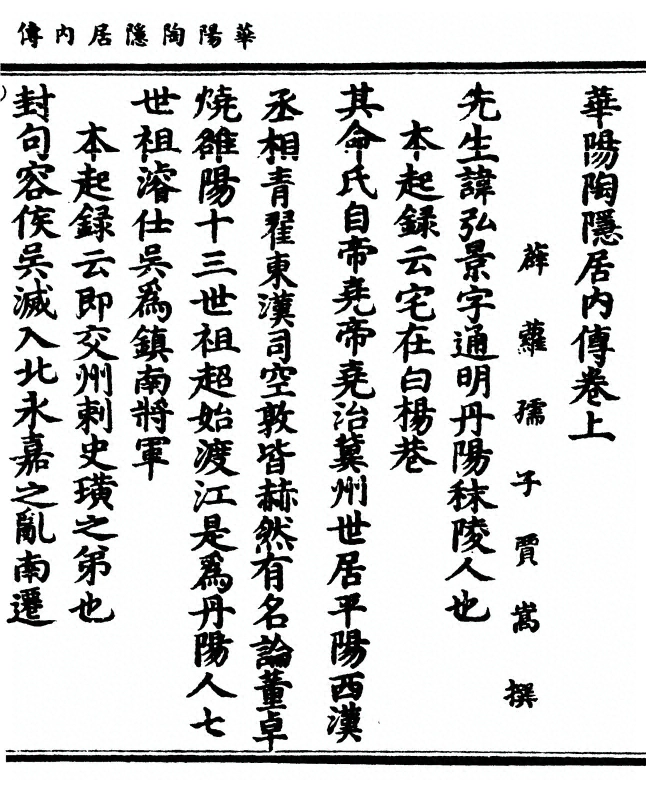 華陽陶隱居内傳
華陽陶隱居内傳卷上
薜蘿孺子賈嵩撰
先生諱弘景字通明丹陽秣陵人也
本起録云宅在白楊巷
其命氏自帝堯帝堯治冀州世居平陽西漢
丞相青翟東漢司空敦皆赫然有名論董卓
燒雒陽十三世祖超始渡江是爲丹陽人七
世祖濬仕吳爲鎮南將軍
本起録云即交州刺史璜之弟也
封句容侯吳滅入北永嘉之亂南遷